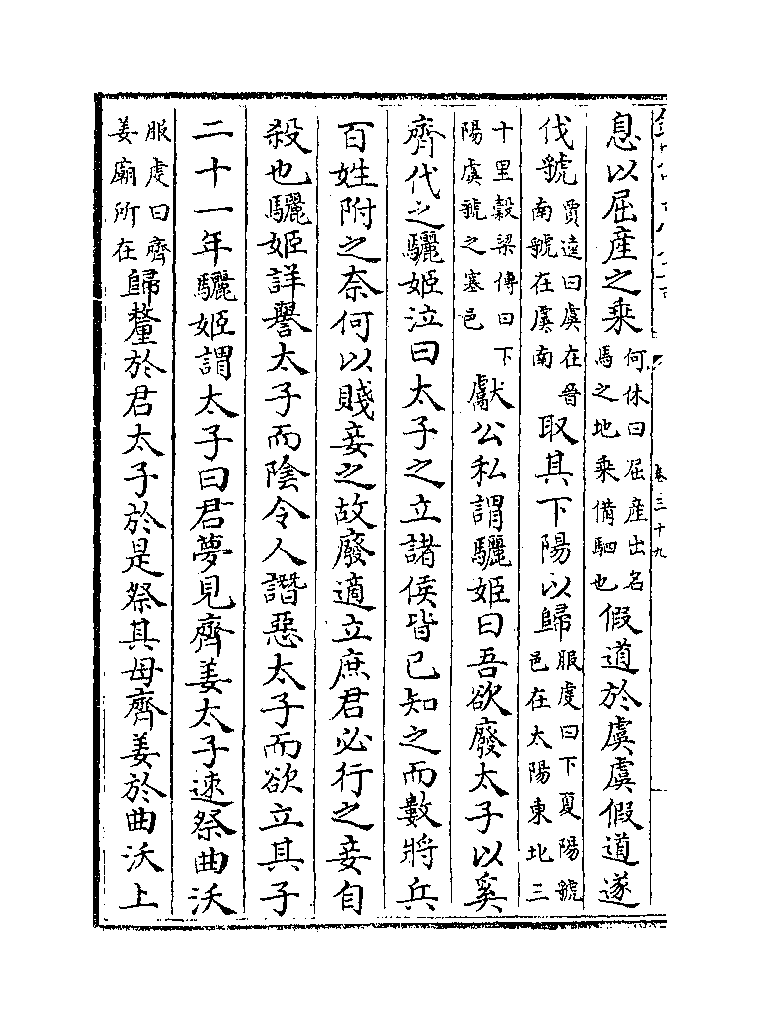 卷三十九
息以屈産之乘何休曰屈産出名馬之地乘備駟也假道於虞虞假道遂
伐虢賈逵曰虞在晉南虢在虞南取其下陽以歸服虔曰下夏陽虢邑在太陽東北三
十里穀梁傳曰下陽虞虢之塞邑獻公私謂驪姬曰吾欲廢太子以奚
齊代之驪姬泣曰太子之立諸侯皆已知之而數將兵
百姓附之奈何以賤妾之故廢適立庶君必行之妾自
殺也驪姬詳譽太子而陰令人譖惡太子而欲立其子
二十一年驪姬謂太子曰君夢見齊姜太子速祭曲沃
服虔曰齊姜廟所在歸釐於君太子於是祭其母齊姜於曲沃上